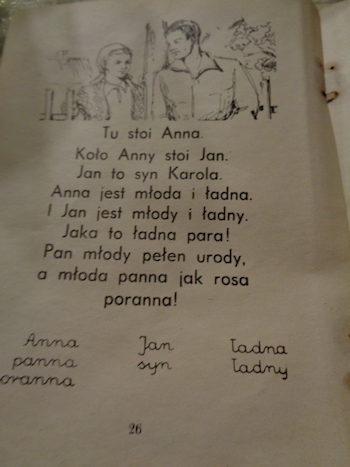 Tu stoi Anna.
Koło Anny stoi Jan.
Jan to syn Karola.
Anna jest młoda i ładna.
I Jan jest młody i ładny.
Jaka to ładna para!
Pan młody pełen urody,
a młoda panna jak rosa
poranna!
Anna Jan ładna
panna syn ładny
oranna
26